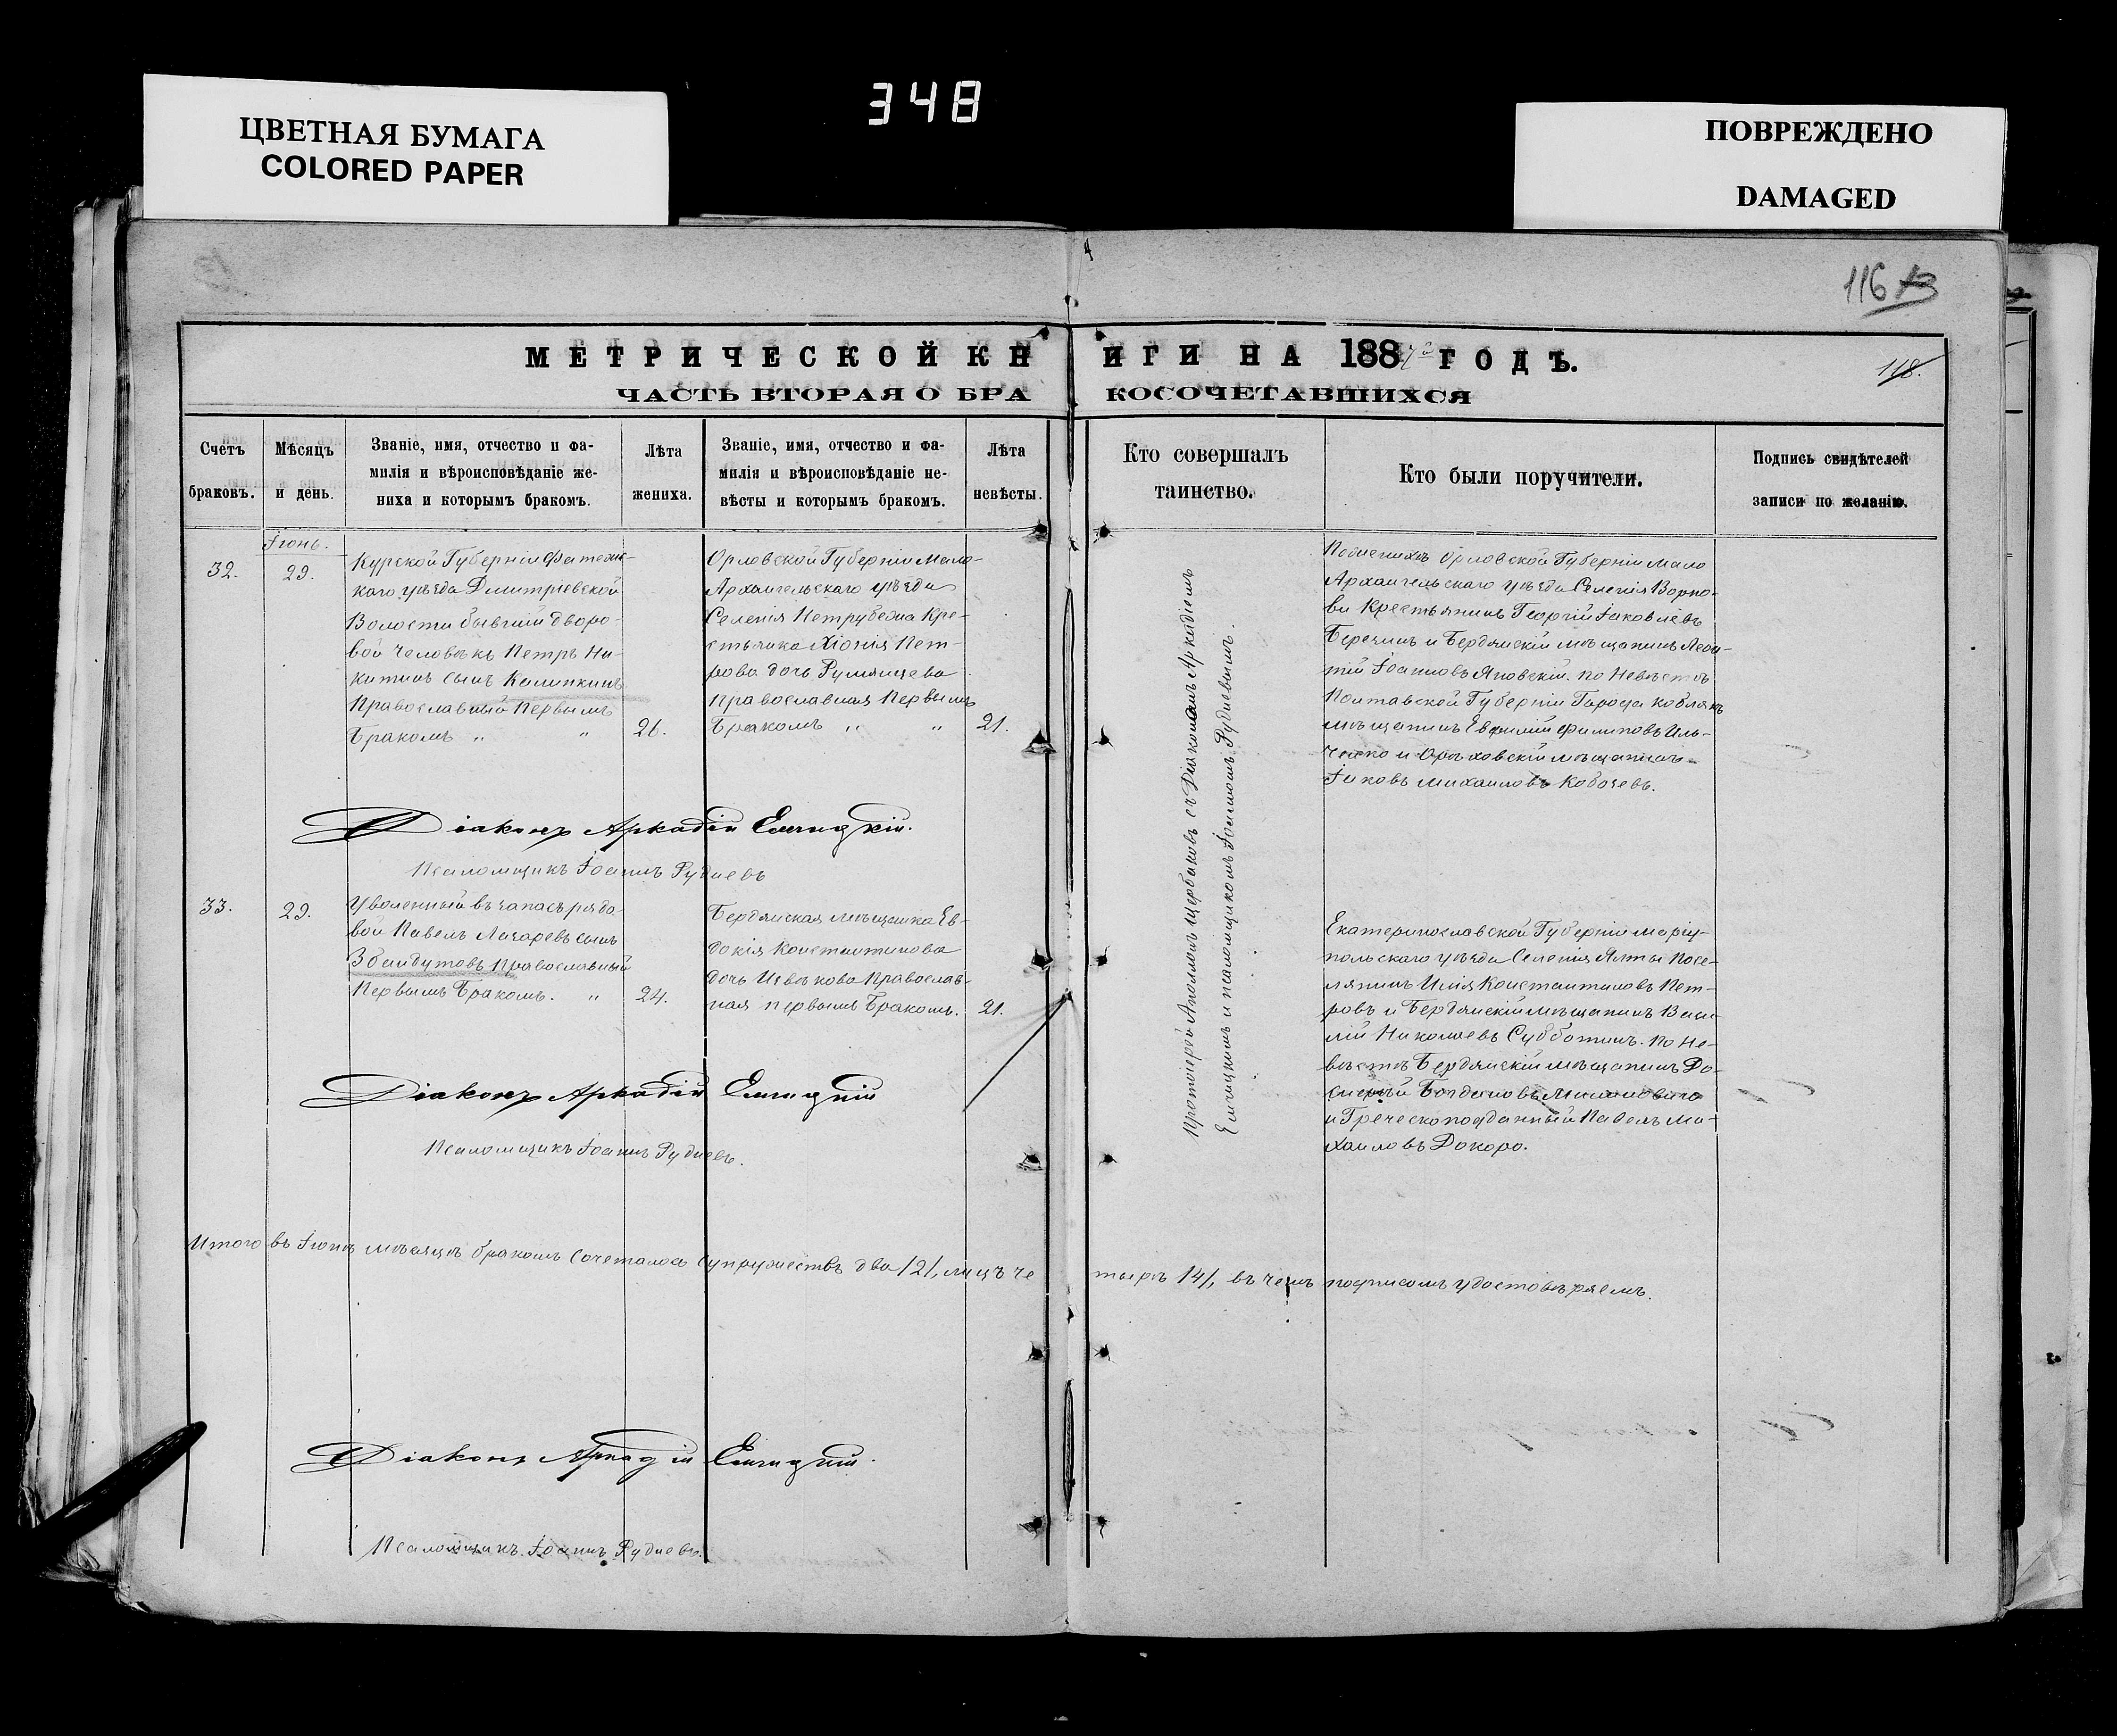 348
ЦВЕТНАЯ БУМАГА
COLORED PAPER
ПОВРЕЖДЕНО
DAMAGED
116
118.
МЕТРИЧЕСКОЙ КН ИГИ НА 1887й ГОДЪ.
ЧАСТЬ ВТОРАЯ О БРА КОСОЧЕТАВШИХСЯ
Счетъ
браковъ.
Мѣсяцъ
и день.
Званіе, имя, отчество и фа-
милія и вѣроисповѣданіе же-
ниха и которымъ бракомъ.
Лѣта
жениха.
Званіе, имя, отчество и фа-
милія и вѣроисповѣданіе не-
вѣсты и которымъ бракомъ.
Лѣта
невѣсты.
Кто совершалъ
таинство.
Кто были поручители.
Подпись свидѣтелей
записи по желанію.
Іюнь.
32.
29.
Курской Губерніи Фатеж-
каго уѣзда Дмитріевской
Волости бывшій дворо-
вой человѣкъ Петръ Ни-
китинъ сынъ Калинкинъ
Православный Первымъ
Бракомъ „ „
26.
Орловской Губерніи Мало
Архангельскаго уѣзда
Селенія Кре-
стьянка Хіонія Пет-
рова дочь Румянцева
Православная Первымъ
Бракомъ „ „
21.
Протоіерей Аполлонъ Щербаковъ съ Діакономъ Аркадіемъ
и псаломщикомъ Іоанномъ Рудневымъ.
По женихѣ Орловской Губерніи Мало
Архангельскаго уѣзда Селенія
Крестьянинъ Георгій Іаковлевъ
и Бердянскій мѣщанинъ Леон-
тій Іоанновъ Яновскій. по Невѣстѣ
Полтавской Губерніи Города Кобелякъ
мѣщанинъ Евфимій Филиповъ Иль-
ченко и Орѣховскій мѣщанинъ
Іаковъ Михаиловъ
Діаконъ Аркадій
Псаломщикъ Іоаннъ Рудневъ
33.
29.
Уволенный въ запасъ рядо-
вой Павелъ Лазаревъ сынъ
Збандутовъ Православный
Первымъ Бракомъ. „
24.
Бердянская мѣщанка Ев-
докія Константинова
дочь Православ-
ная первымъ Бракомъ.
21.
Екатеринославской Губерніи Маріу-
польскаго уѣзда Селенія Ялты Посе-
лянинъ Илія Константиновъ Пет-
ровъ и Бердянскій мѣщанинъ Васи-
лій Николаевъ Субботинъ. по Не-
вѣстѣ Бердянскій мѣщанинъ
Богдановъ
и Греческоподданный Павелъ Ми-
хаиловъ Докоро.
Діаконъ Аркадій
Псаломщикъ Іоаннъ Рудневъ.
Итого въ Іюнѣ мѣсяцѣ бракомъ сочеталось супружествъ два /2/, лицъ че тыре /4/, въ чемъ подписомъ удостовѣряемъ.
Діаконъ Аркадій
Псаломщикъ Іоаннъ Рудневъ.